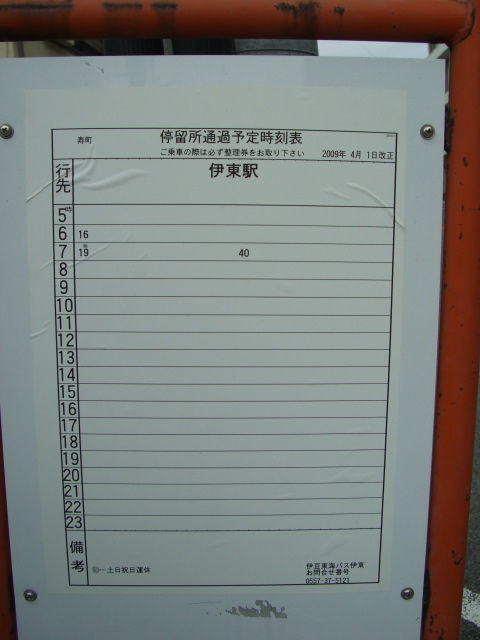 寿町
停留所通過予定時刻表
ご乗車の際は必ず整理券をお取り下さい
2009年 4月 1日改正
行先
伊東駅
5時
6 16
7 19 40
8
9
10
11
12
13
14
15
16
17
18
19
20
21
22
23
備考
…土日祝日運休
伊豆東海バス伊東
お問合せ番号
0557-37-5121